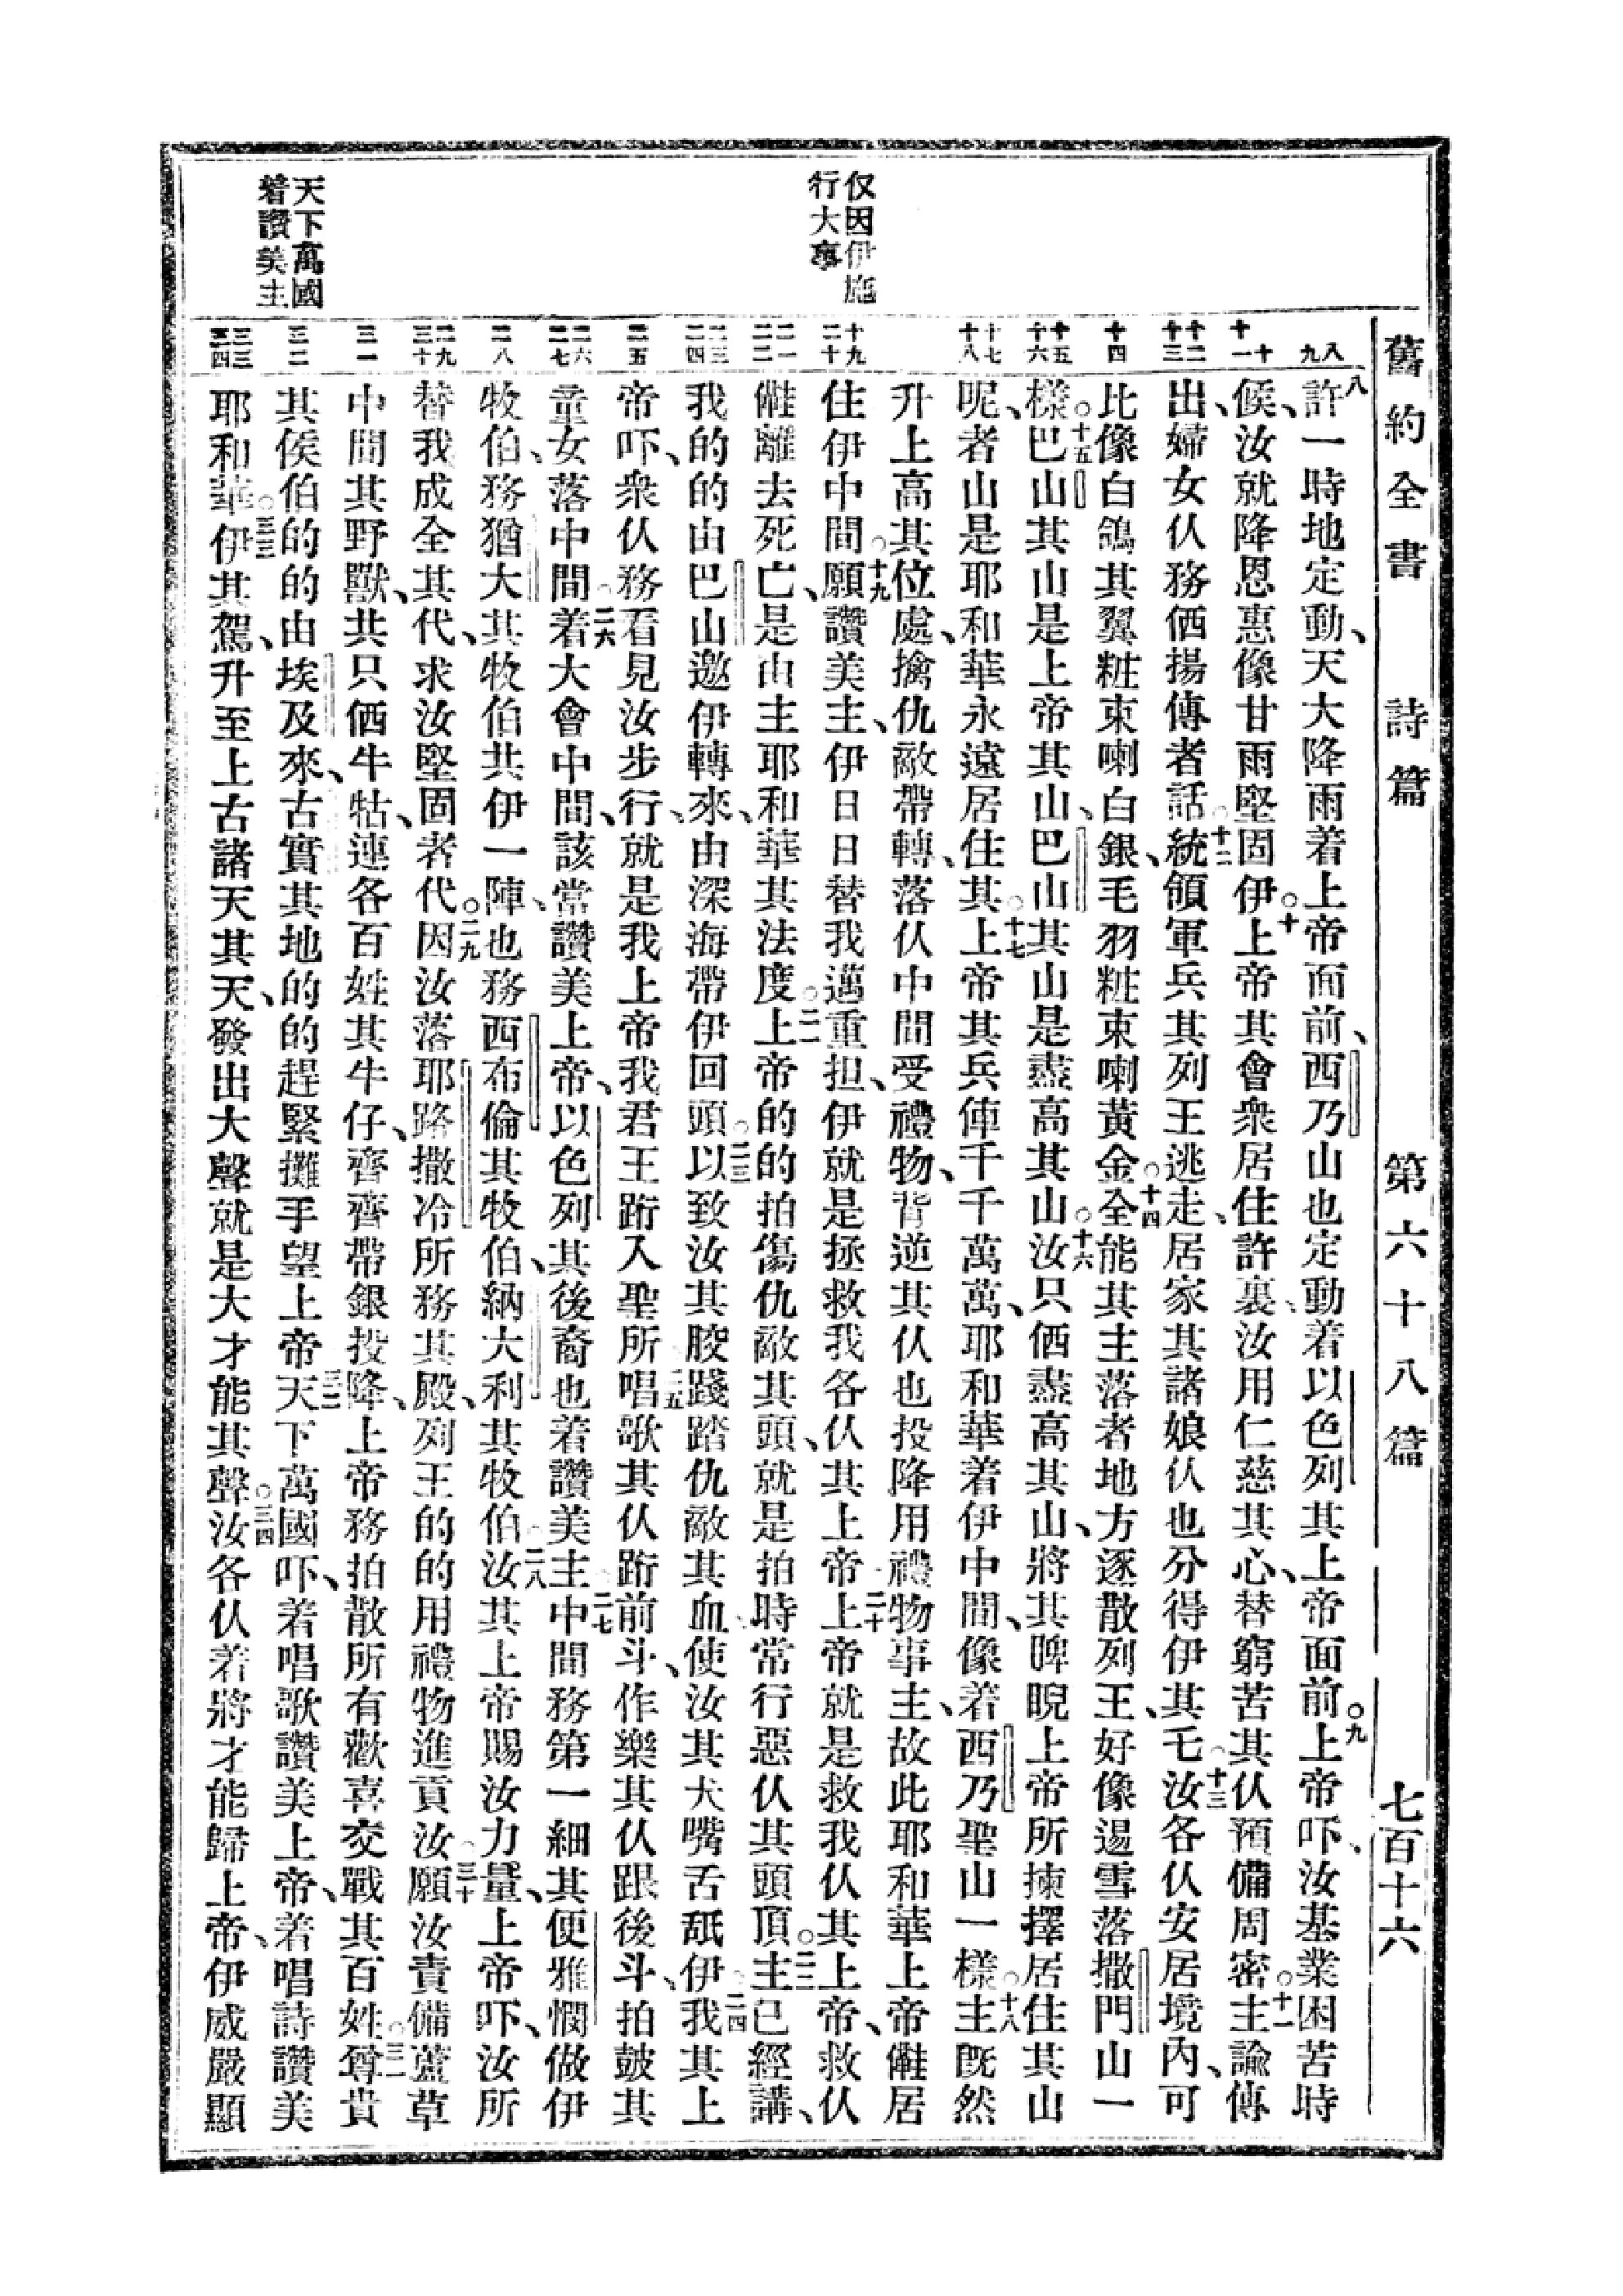 舊約全書 詩篇 第六十八篇 七百十六
仅因伊施
行大事
天下萬國
着讚美主
八 九
十 十一
十二 十三
十四
十五 十六
十七 十八
十九 二十
二一 二二
二三 二四
二五
二六 二七
二八
二九 三十
三一
三二
三三 三四
八許一時地定動、天大降雨着上帝面前、西乃山也定動着以色列其上帝面前。九上帝吓、汝基業困苦時
候、汝就降恩惠像甘雨堅固伊。十上帝其會衆居住許裏、汝用仁慈其心、替窮苦其仅預備周密。十一主諭傳
出、婦女仅務伵揚傳者話。十二統領軍兵其列王逃走、居家其諸娘仅也分得伊其乇、十三汝各仅安居境內、可
比像白鴿其翼粧束喇白銀、毛羽粧束喇黃金。十四全能其主落者地方逐散列王、好像逿雪落撒門山一
樣。十五巴山其山是上帝其山、巴山其山是盡高其山。十六汝只伵盡高其山、將其睥睨上帝所揀擇居住其山
呢、者山是耶和華永遠居住其。十七上帝其兵俥千千萬萬、耶和華着伊中間、像着西乃聖山一樣。十八主旣然
升上高其位處、擒仇敵帶轉、落仅中間受禮物、背逆其仅也投降用禮物事主、故此耶和華上帝儺居
住伊中間。十九願讚美主、伊日日替我邁重担、伊就是拯救我各仅其上帝。二十上帝就是救我仅其上帝、救仅
儺離去死亡、是由主耶和華其法度。二一上帝的的拍傷仇敵其頭、就是拍時常行惡仅其頭頂。二二主已經講、
我的的由巴山邀伊轉來、由深海帶伊回頭。二三以致汝其骹踐踏仇敵其血、使汝其犬嘴舌舐伊。二四我其上
帝吓、衆仅務看見汝步行、就是我上帝我君王跨入聖所。二五唱歌其仅跨前斗、作樂其仅跟後斗、拍鼓其
童女落中間。二六着大會中間、該當讚美上帝、以色列其後裔也着讚美主。二七中間務第一細其便雅憫做伊
牧伯、務猶大其牧伯共伊一陣、也務西布倫其牧伯、納大利其牧伯。二八汝其上帝賜汝力量、上帝吓、汝所
替我成全其代、求汝堅固者代。二九因汝落耶路撒冷所務其殿、列王的的用禮物進貢汝。三十願汝責備蘆草
中間其野獸、共只伵牛牯、連各百姓其牛仔、齊齊帶銀投降、上帝務拍散所有歡喜交戰其百姓。三一尊貴
其侯伯的的由埃及來、古實其地的的趕緊攤手望上帝。三二天下萬國吓、着唱歌讚美上帝、着唱詩讚美
耶和華。三三伊其駕、升至上古諸天其天、發出大聲、就是大才能其聲。三四汝各仅着將才能歸上帝、伊威嚴顯